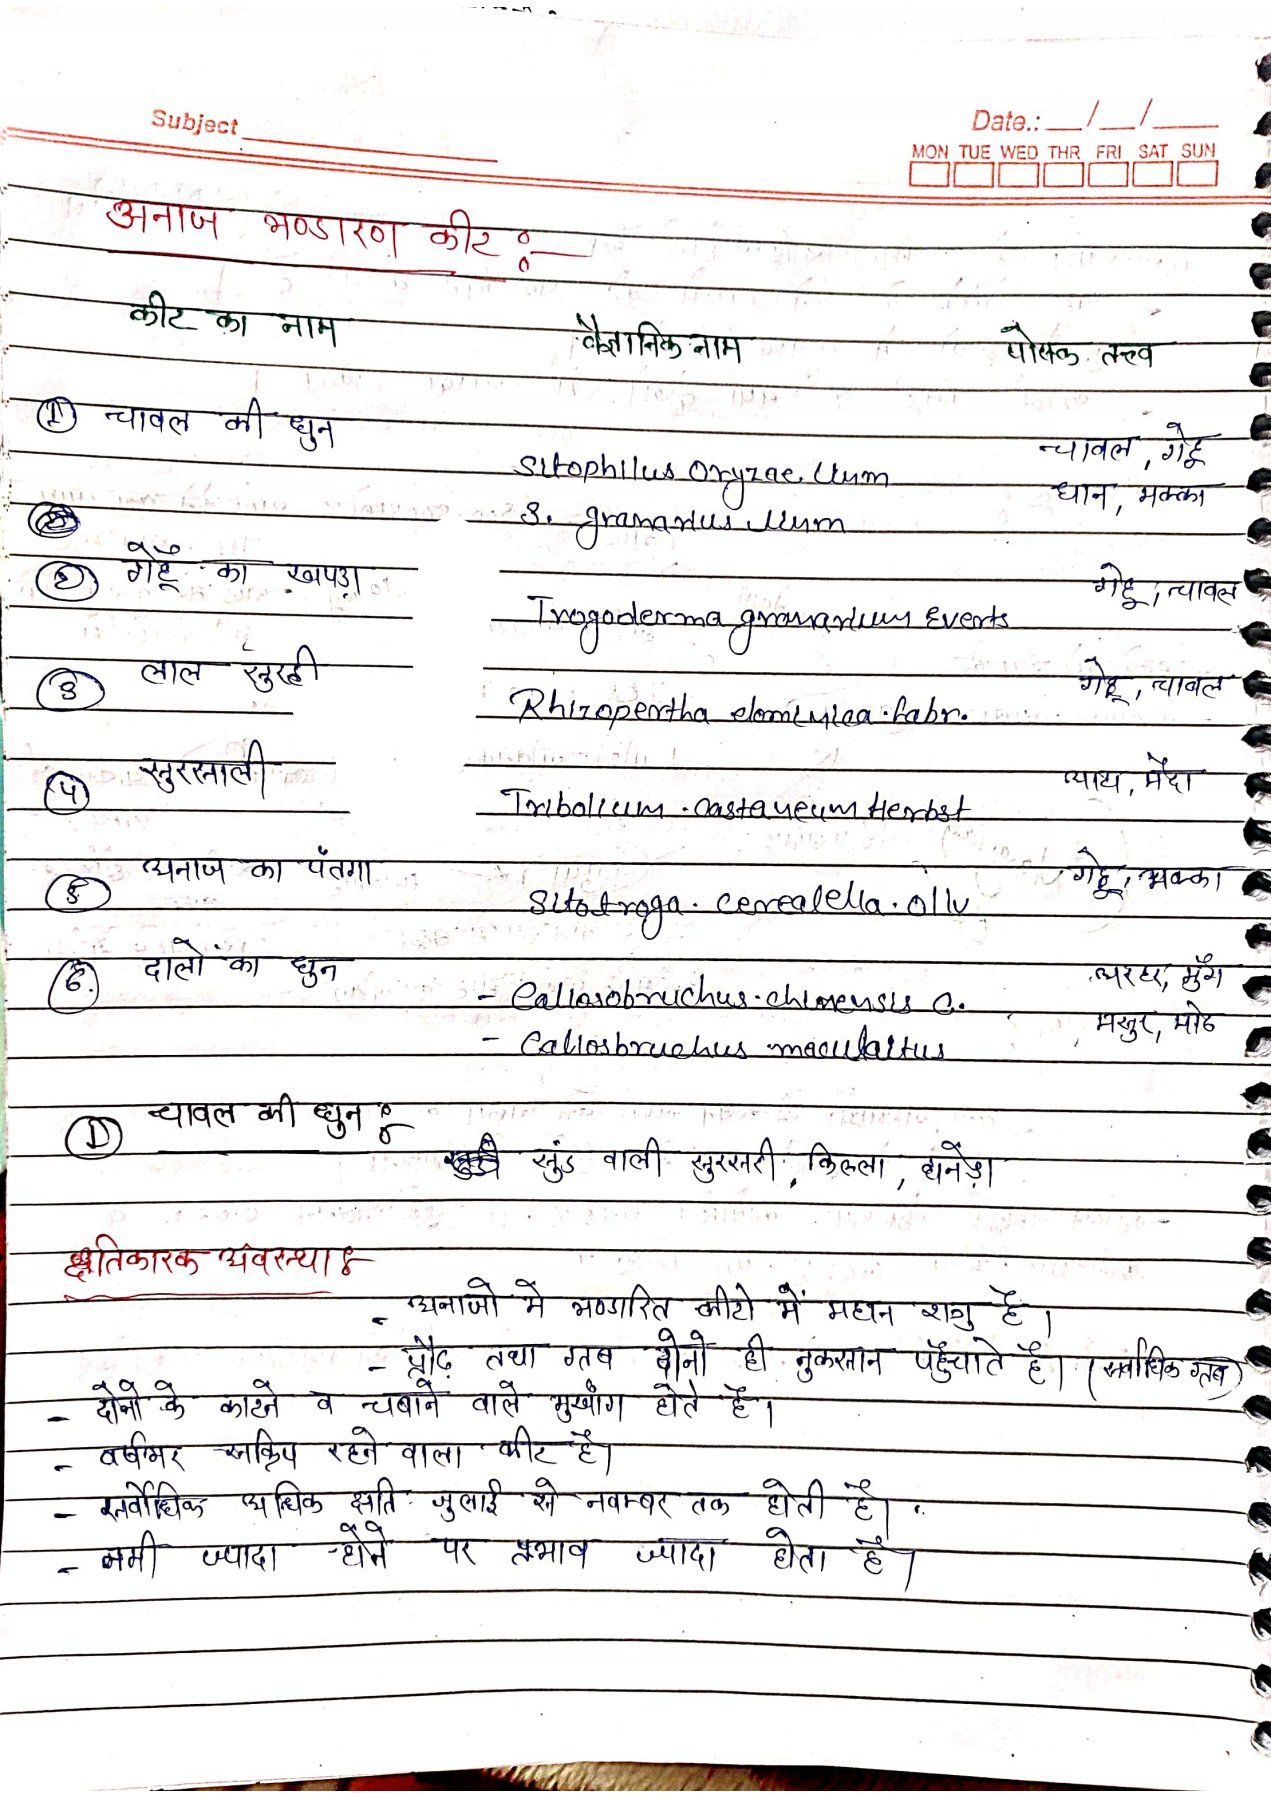 Subject
Date.: __/__/__
MON TUE WED THR FRI SAT SUN
अनाज भण्डारण कीट :-
कीट का नाम वैज्ञानिक नाम पोषक तत्त्व
① चावल की घुन Sitophilus Oryzae. चावल, गेहू
धान, मक्का
S. granarius
② गेहूँ का खपड़ा Trogoderma granarium Everts गेहू, चावल
③ लाल सुरही Rhizopertha dominica. fabr. गेहू, चावल
④ सुरसाली Tribolium. Castaneum Herbst मैदा
⑤ अनाज का पंतगा Sitotroga. cerealella. oliv गेहू, मक्का
⑥. दालों का घुन - Callosobruchus. chinensis C. अरहर, मुँग
मसुर, मोठ
- Callosbruchus maculaitus
① चावल की घुन :-
सुंड वाली सुरसरी, किल्ला, धनेड़ा
क्षतिकारक अवस्था :-
- अनाजो मे भण्डारित कीटो में महान शत्रु है।
- प्रौढ़ तथा ग्रब दोनो ही नुकसान पहुँचाते है। (सर्वाधिक ग्रब)
- दोनो के काटने व चबाने वाले मुखाँग होते है।
- वर्षभर सक्रिय रहने वाला कीट है।
- सर्वोधिक अधिक क्षति जुलाई से नवम्बर तक होती है।
- नमी ज्यादा होने पर प्रभाव ज्यादा होता है।